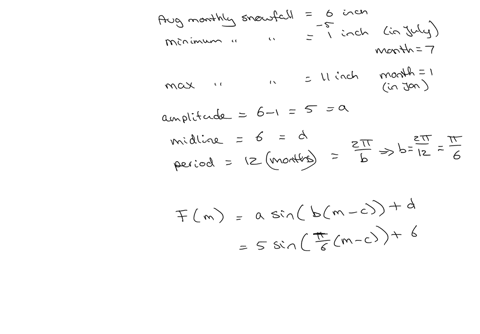 Avg monthly snowfall = 6 inch
-5
minimum " " = 1 inch (in July)
month = 7
max " " = 11 inch month = 1
(in Jan)
amplitude = 6-1 = 5 = a
midline = 6 = d
period = 12 (months) = 2π/b => b = 2π/12 = π/6
F(m) = a sin(b(m-c)) + d
= 5 sin(π/6 (m-c)) + 6